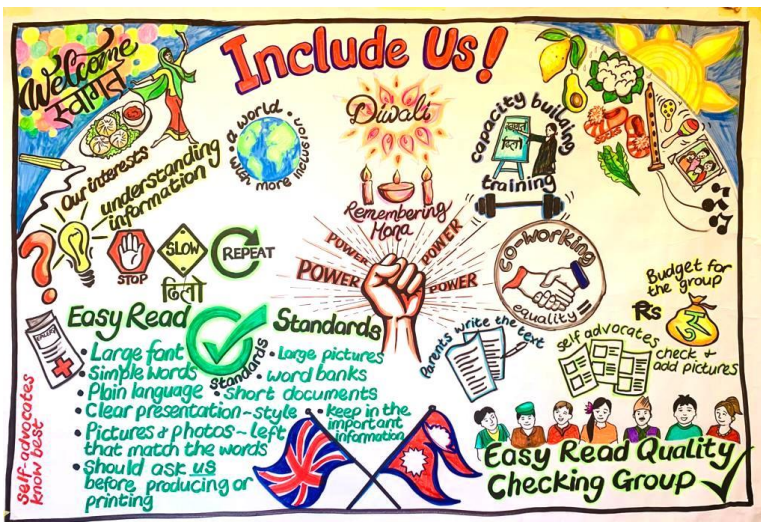 Include Us!
Welcome
स्वागत
Our interests
understanding
information
a world
with more inclusion
Diwali
Remembering
Mona
capacity building
training
STOP
SLOW
ढिलो
REPEAT
POWER
POWER
POWER
POWER
co-working
equality =
Budget for
the group
Rs
Easy Read
Standards
Standards
• Large font
• Simple words
• Plain language
• Clear presentation - style
• Pictures & photos - left
that match the words
• Should ask us
before producing or
printing
• Large pictures
• word banks
• short documents
• keep in the
important
information
self-advocates
know best
Parents write the text
self advocates
check +
add pictures
Easy Read Quality
Checking Group